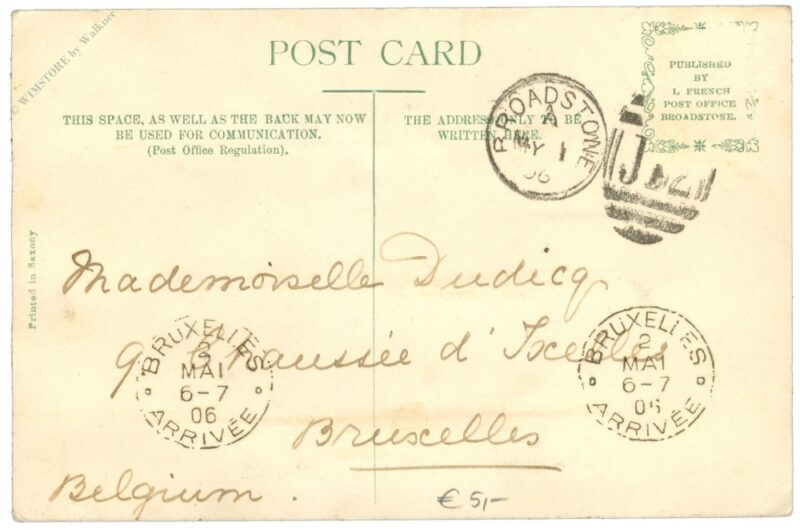 © WIMSTORE by Walkner
POST CARD
THIS SPACE, AS WELL AS THE BACK MAY NOW
BE USED FOR COMMUNICATION.
(Post Office Regulation).
THE ADDRESS ONLY TO BE
WRITTEN HERE.
PUBLISHED
BY
L FRENCH
POST OFFICE
BROADSTONE.
BROADSTONE
A
MY 1
06
J12
Printed in Saxony
Mademoiselle Dudicq
9 Chaussée d'Ixelles
Bruxelles
Belgium.
BRUXELLES
2
MAI
6-7
06
ARRIVÉE
BRUXELLES
2
MAI
6-7
06
ARRIVÉE
€ 5,-